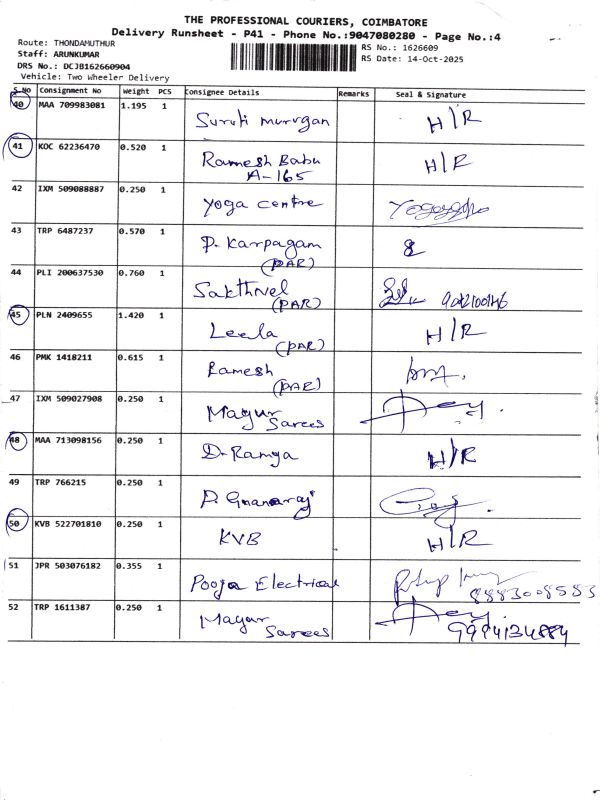 THE PROFESSIONAL COURIERS, COIMBATORE
Delivery Runsheet - P41 - Phone No.:9047080280 - Page No.:4
Route: THONDAMUTHUR
RS No.: 1626609
Staff: ARUNKUMAR
RS Date: 14-Oct-2025
DRS No.: DCJB162660904
Vehicle: Two Wheeler Delivery
S.No Consignment No Weight PCS Consignee Details Remarks Seal & Signature
40 MAA 709983081 1.195 1
Suruti murugan H/R
41 KOC 62236470 0.520 1
Ramesh Babu H/R
A-165
42 IXM 509088887 0.250 1
Yoga centre
43 TRP 6487237 0.570 1
P. Karpagam
(PAR)
44 PLI 200637530 0.760 1
Sakthivel
(PAR)
45 PLN 2409655 1.420 1
Leela H/R
(PAR)
46 PMK 1418211 0.615 1
Ramesh
(PAR)
47 IXM 509027908 0.250 1
Mayur
Sarees
48 MAA 713098156 0.250 1
D. Ramya H/R
49 TRP 766215 0.250 1
P. Gnanaraj
50 KVB 522701810 0.250 1
KVB H/R
51 JPR 503076182 0.355 1
Pooja Electrical
8883008583
52 TRP 1611387 0.250 1
Mayur
Sarees 9994134884